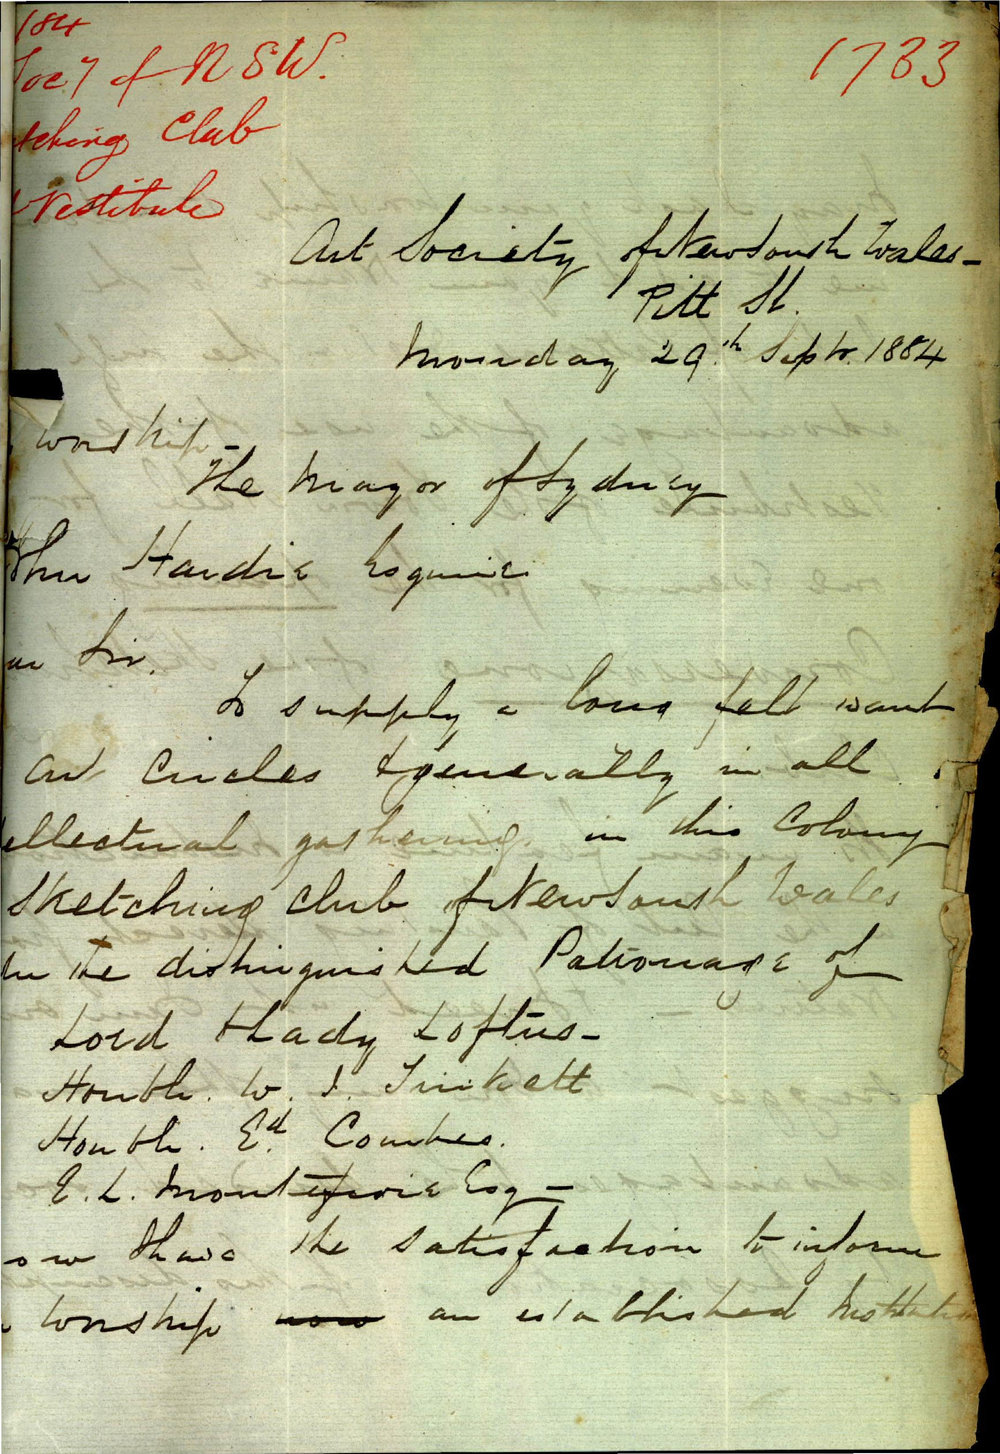 184
Socy of NSW.
tching Club
Vestibule
1733
Art Society of New South Wales -
Pitt St.
Monday 29.th Septr. 1884
worship -
The Mayor of Sydney
John Hardie Esquire
Sir.
To supply a long felt want
Art Circles & generally in all
ellectual gathering in this Colony
Sketching Club of New South Wales
the distinguished Patronage of
Lord & Lady Loftus -
Honble. W. J. Trickett
Honble. Ed. Combes.
E. L. Montefiore Esq -
ow & have the satisfaction to inform
worship now an established Institution